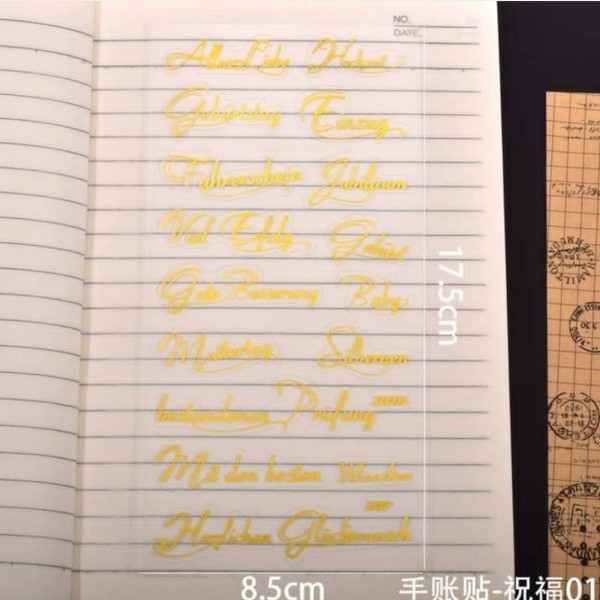 NO.
DATE.
Alles Liebe Hochzeit
Geburtstag Einzug
Führerschein Jubiläum
Viel Erfolg Geburt
Gute Besserung Baby
Muttertag Silbernen
zum
bestandenen Prüfung
Mit den besten Wünschen
zur
Herzlichen Glückwunsch
17.5cm
8.5cm 手账贴-祝福01